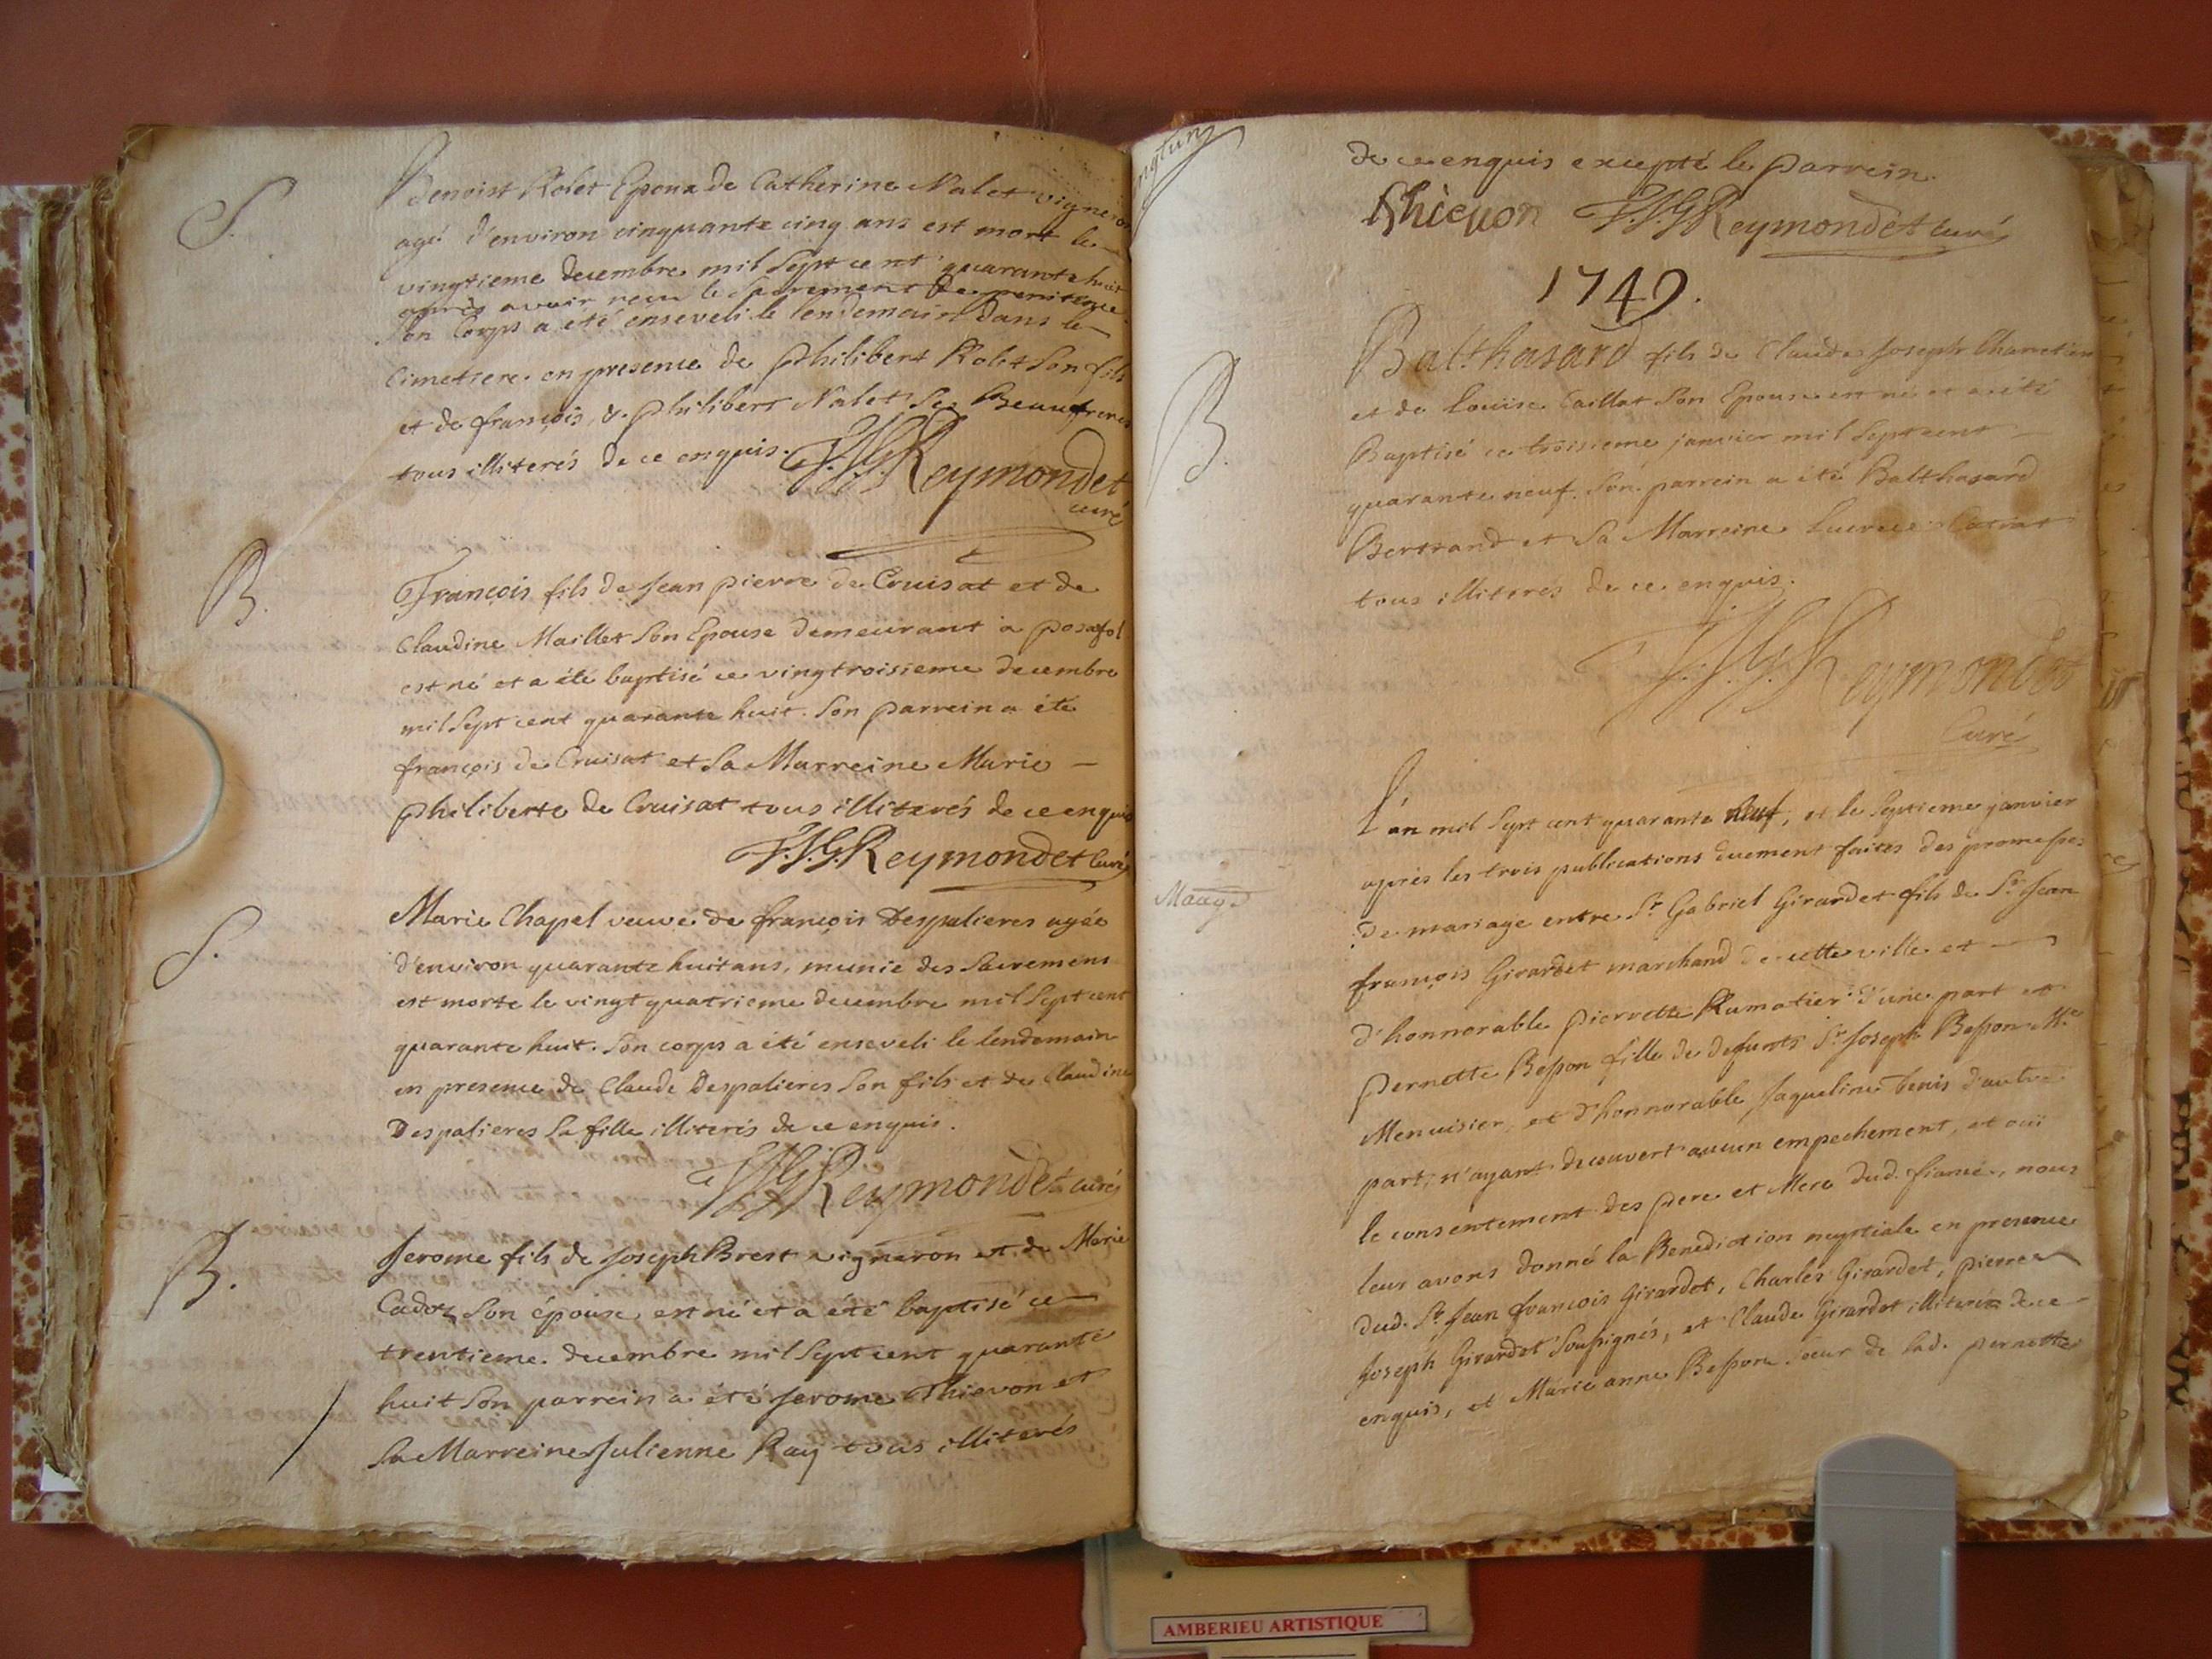 S.
Benoist Rolet Epoux de Catherine Nalet vigneron
agé d'environ cinquante cinq ans est mort le
vingtieme decembre mil sept cent quarante huit
après avoir reçu le Sacrement de penitence.
Son Corps a été enseveli le lendemain dans le
Cimetiere en presence de philibert Rolet son fils
et de françois, & philibert Nalet ses Beaufreres
tous illiterés de ce enquis. J.J.G. Reymondet
curé
B.
François fils de Jean pierre de Cruisat et de
Claudine Maillet son Epouse demeurant a posafol
est né et a été baptisé ce vingtroisieme decembre
mil sept cent quarante huit. Son parrein a été
françois de Cruisat et sa Marreine Marie
philiberte de Cruisat tous illiterés de ce enquis
J.J.G. Reymondet Curé
S.
Marie Chapel veuve de françois Despalieres agée
d'environ quarante huit ans, munie des Sacremens
est morte le vingt quatrieme decembre mil sept cent
quarante huit. Son corps a été enseveli le lendemain
en presence de Claude Despalieres son fils et de Claudine
Despalieres sa fille illiterés de ce enquis.
J.J.G. Reymondet curé
B.
Jerome fils de Joseph Brest vigneron et de Marie
Cadoz son épouse est né et a été baptisé ce
trentieme decembre mil sept cent quarante
huit son parrein a été Jerome Thievon et
sa Marreine Julienne Ray tous illiterés
de ce enquis excepté le parrein.
Thievon J.J.G. Reymondet curé
1749.
B.
Balthasard fils de Claude Joseph Charretier
et de Louise Caillat son Epouse est né et a été
Baptisé ce troisieme janvier mil sept cent
quarante neuf. Son parrein a été Balthasard
Bertrand et sa Marreine Lucrece
tous illiterés de ce enquis.
J.J.G. Reymondet
Curé
Mariage
L'an mil sept cent quarante neuf, et le septieme janvier
après les trois publications duement faites des promesses
de mariage entre Sr. Gabriel Girardet fils de Sr. Jean
françois Girardet marchand de cette ville et
d'honnorable pierrette Rumatier d'une part et
pernette Besson fille de defunts Sr. Joseph Besson Me.
Menuisier, et d'honnorable Jaqueline Tenis d'autre
part, n'ayant decouvert aucun empechement, et oui
le consentement des pere et Mere dud. fiancé, nous
leur avons donné la Benediction nuptiale en presence
dud. Sr. Jean françois Girardet, Charles Girardet, pierre
Joseph Girardet soussignés, et Claude Girardet illiterés de ce
enquis, et Marie anne Besson soeur de lad. pernette
AMBERIEU ARTISTIQUE